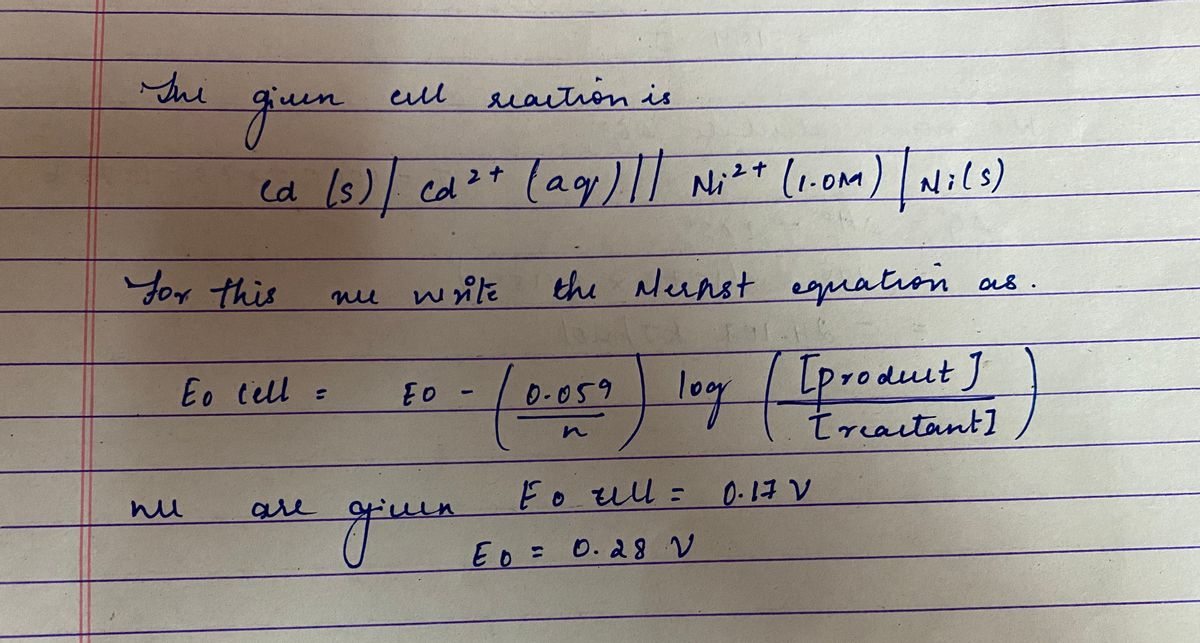 The given cell reaction is
Cd (s) | Cd²⁺ (aq) || Ni²⁺ (1.0M) | Ni(s)
For this we write the Nernst equation as.
E0 cell = E0 - (0.059/n) log ([product]/[reactant])
we are given E0 cell = 0.17 V
E0 = 0.28 V